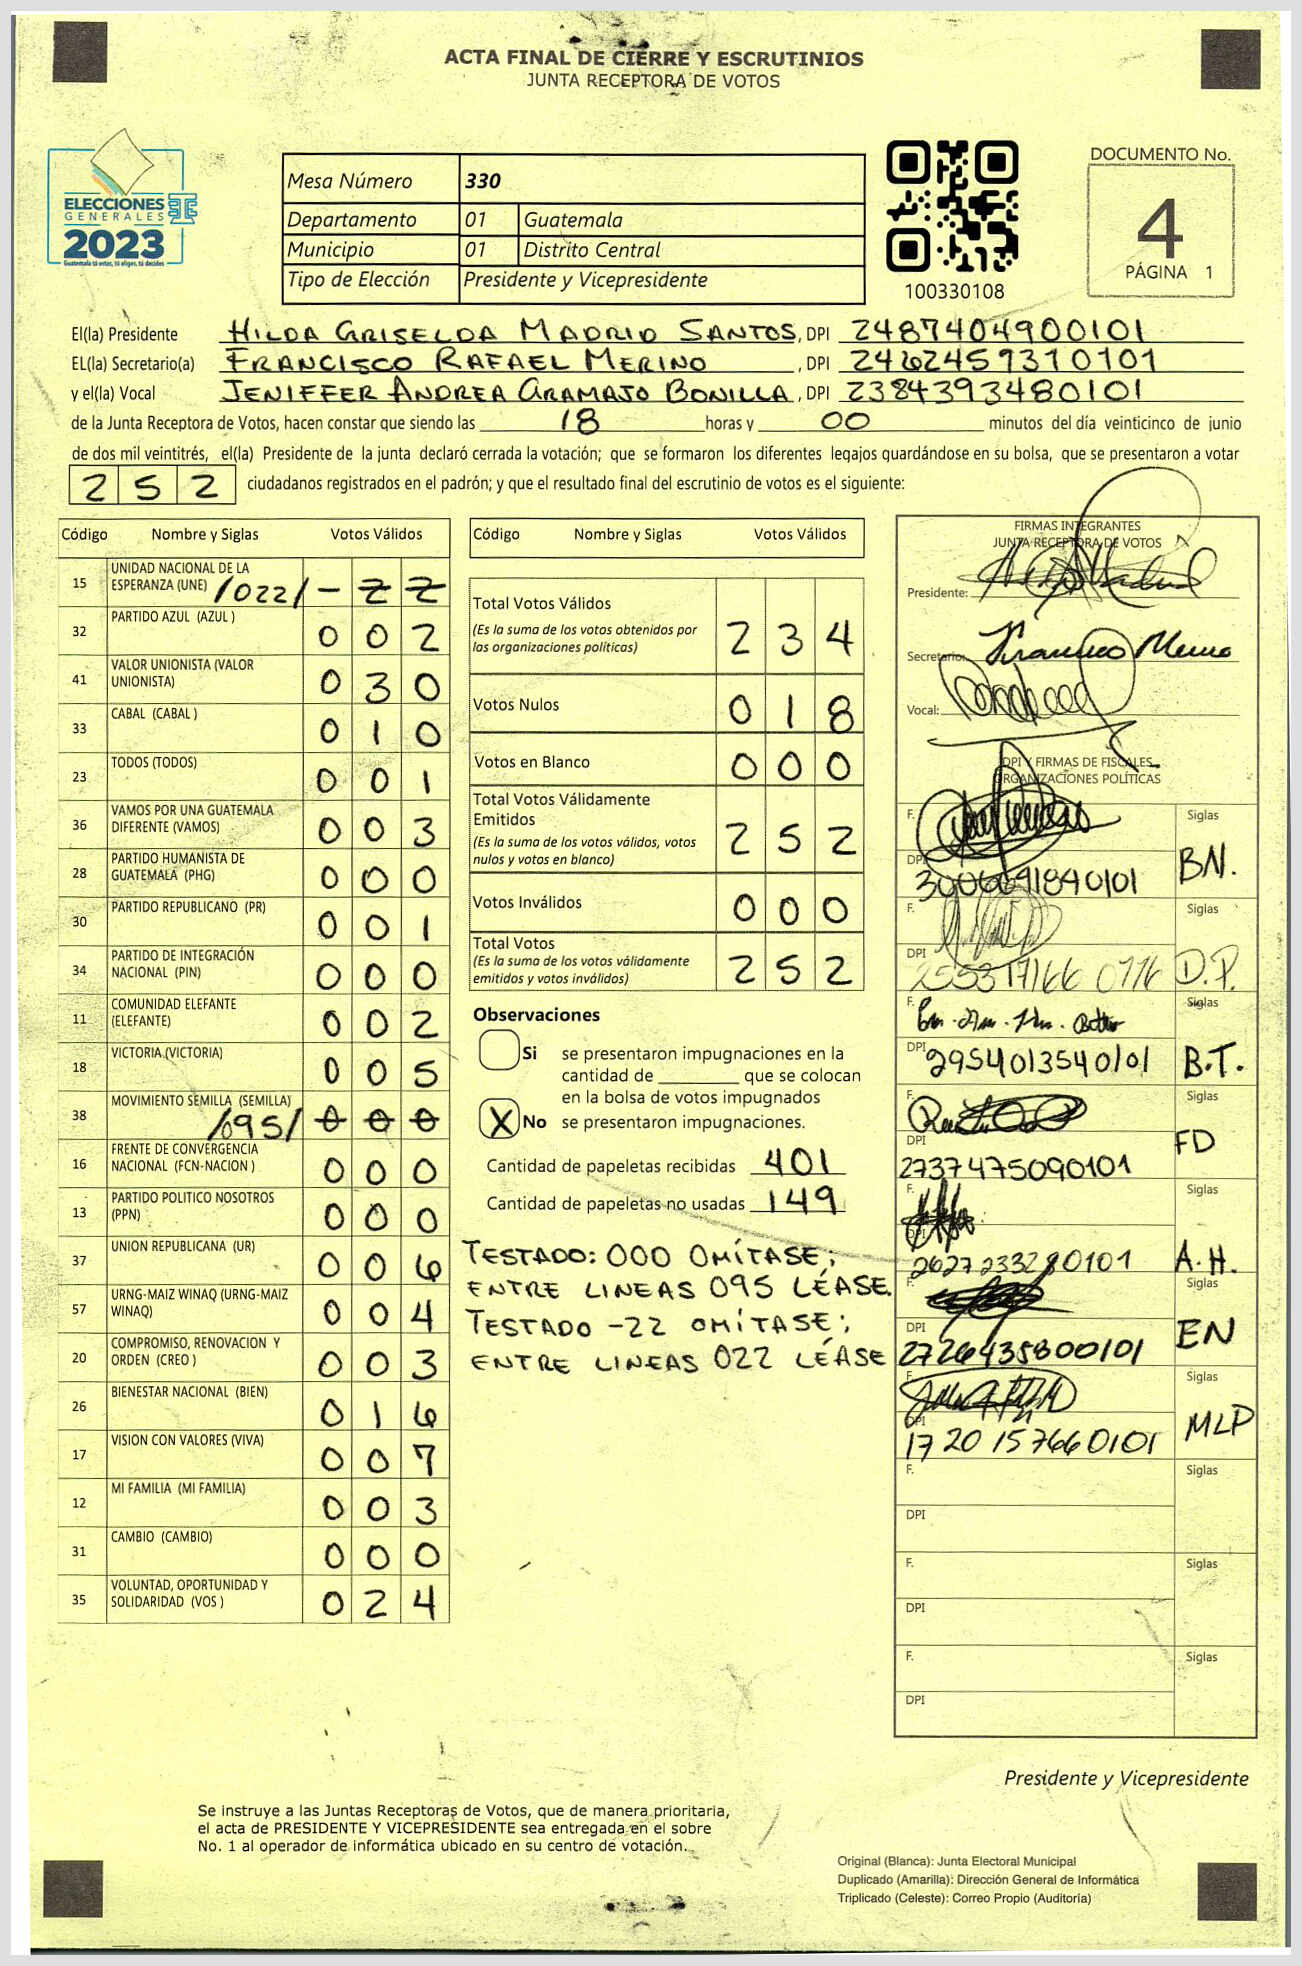 ACTA FINAL DE CIERRE Y ESCRUTINIOS
JUNTA RECEPTORA DE VOTOS
ELECCIONES
GENERALES
2023
Guatemala tú votas, tú eliges, tú decides
Mesa Número 330
Departamento 01 Guatemala
Municipio 01 Distrito Central
Tipo de Elección Presidente y Vicepresidente
100330108
DOCUMENTO No.
4
PÁGINA 1
El(la) Presidente HILDA GRISELDA MADRID SANTOS, DPI 2487404900101
EL(la) Secretario(a) FRANCISCO RAFAEL MERINO, DPI 2462459310101
y el(la) Vocal JENIFFER ANDREA GRAMAJO BONILLA, DPI 2384393480101
de la Junta Receptora de Votos, hacen constar que siendo las 18 horas y 00 minutos del día veinticinco de junio
de dos mil veintitrés, el(la) Presidente de la junta declaró cerrada la votación; que se formaron los diferentes legajos guardándose en su bolsa, que se presentaron a votar
252 ciudadanos registrados en el padrón; y que el resultado final del escrutinio de votos es el siguiente:
Código Nombre y Siglas Votos Válidos
15 UNIDAD NACIONAL DE LA
ESPERANZA (UNE) /022/ - 2 2
32 PARTIDO AZUL (AZUL ) 0 0 2
41 VALOR UNIONISTA (VALOR
UNIONISTA) 0 3 0
33 CABAL (CABAL ) 0 1 0
23 TODOS (TODOS) 0 0 1
36 VAMOS POR UNA GUATEMALA
DIFERENTE (VAMOS) 0 0 3
28 PARTIDO HUMANISTA DE
GUATEMALA (PHG) 0 0 0
30 PARTIDO REPUBLICANO (PR) 0 0 1
34 PARTIDO DE INTEGRACIÓN
NACIONAL (PIN) 0 0 0
11 COMUNIDAD ELEFANTE
(ELEFANTE) 0 0 2
18 VICTORIA (VICTORIA) 0 0 5
38 MOVIMIENTO SEMILLA (SEMILLA)
/095/ 0 0 0
16 FRENTE DE CONVERGENCIA
NACIONAL (FCN-NACION ) 0 0 0
13 PARTIDO POLITICO NOSOTROS
(PPN) 0 0 0
37 UNION REPUBLICANA (UR) 0 0 6
57 URNG-MAIZ WINAQ (URNG-MAIZ
WINAQ) 0 0 4
20 COMPROMISO, RENOVACION Y
ORDEN (CREO ) 0 0 3
26 BIENESTAR NACIONAL (BIEN) 0 1 6
17 VISION CON VALORES (VIVA) 0 0 7
12 MI FAMILIA (MI FAMILIA) 0 0 3
31 CAMBIO (CAMBIO) 0 0 0
35 VOLUNTAD, OPORTUNIDAD Y
SOLIDARIDAD (VOS ) 0 2 4
Código Nombre y Siglas Votos Válidos
Total Votos Válidos
(Es la suma de los votos obtenidos por
las organizaciones políticas) 2 3 4
Votos Nulos 0 1 8
Votos en Blanco 0 0 0
Total Votos Válidamente
Emitidos
(Es la suma de los votos válidos, votos
nulos y votos en blanco) 2 5 2
Votos Inválidos 0 0 0
Total Votos
(Es la suma de los votos válidamente
emitidos y votos inválidos) 2 5 2
Observaciones
Si se presentaron impugnaciones en la
cantidad de ________ que se colocan
en la bolsa de votos impugnados
X No se presentaron impugnaciones.
Cantidad de papeletas recibidas 401
Cantidad de papeletas no usadas 149
TESTADO: 000 OMÍTASE;
ENTRE LINEAS 095 LÉASE.
TESTADO -22 OMÍTASE;
ENTRE LINEAS 022 LÉASE
FIRMAS INTEGRANTES
JUNTA RECEPTORA DE VOTOS
Presidente:
Secretario: Francisco Merino
Vocal:
DPI Y FIRMAS DE FISCALES
ORGANIZACIONES POLÍTICAS
F. Siglas
DPI 3006691840101 BN.
F. Siglas
DPI D.P.
F. Siglas
DPI 2954013540101 B.T.
F. Siglas
DPI 2737475090101 FD
F. Siglas
DPI 2627233280101 A.H.
F. Siglas
DPI 2726435800101 EN
F. Siglas
DPI 1720157660101 MLP
F. Siglas
DPI
F. Siglas
DPI
F. Siglas
DPI
Presidente y Vicepresidente
Se instruye a las Juntas Receptoras de Votos, que de manera prioritaria,
el acta de PRESIDENTE Y VICEPRESIDENTE sea entregada en el sobre
No. 1 al operador de informática ubicado en su centro de votación.
Original (Blanca): Junta Electoral Municipal
Duplicado (Amarilla): Dirección General de Informática
Triplicado (Celeste): Correo Propio (Auditoría)